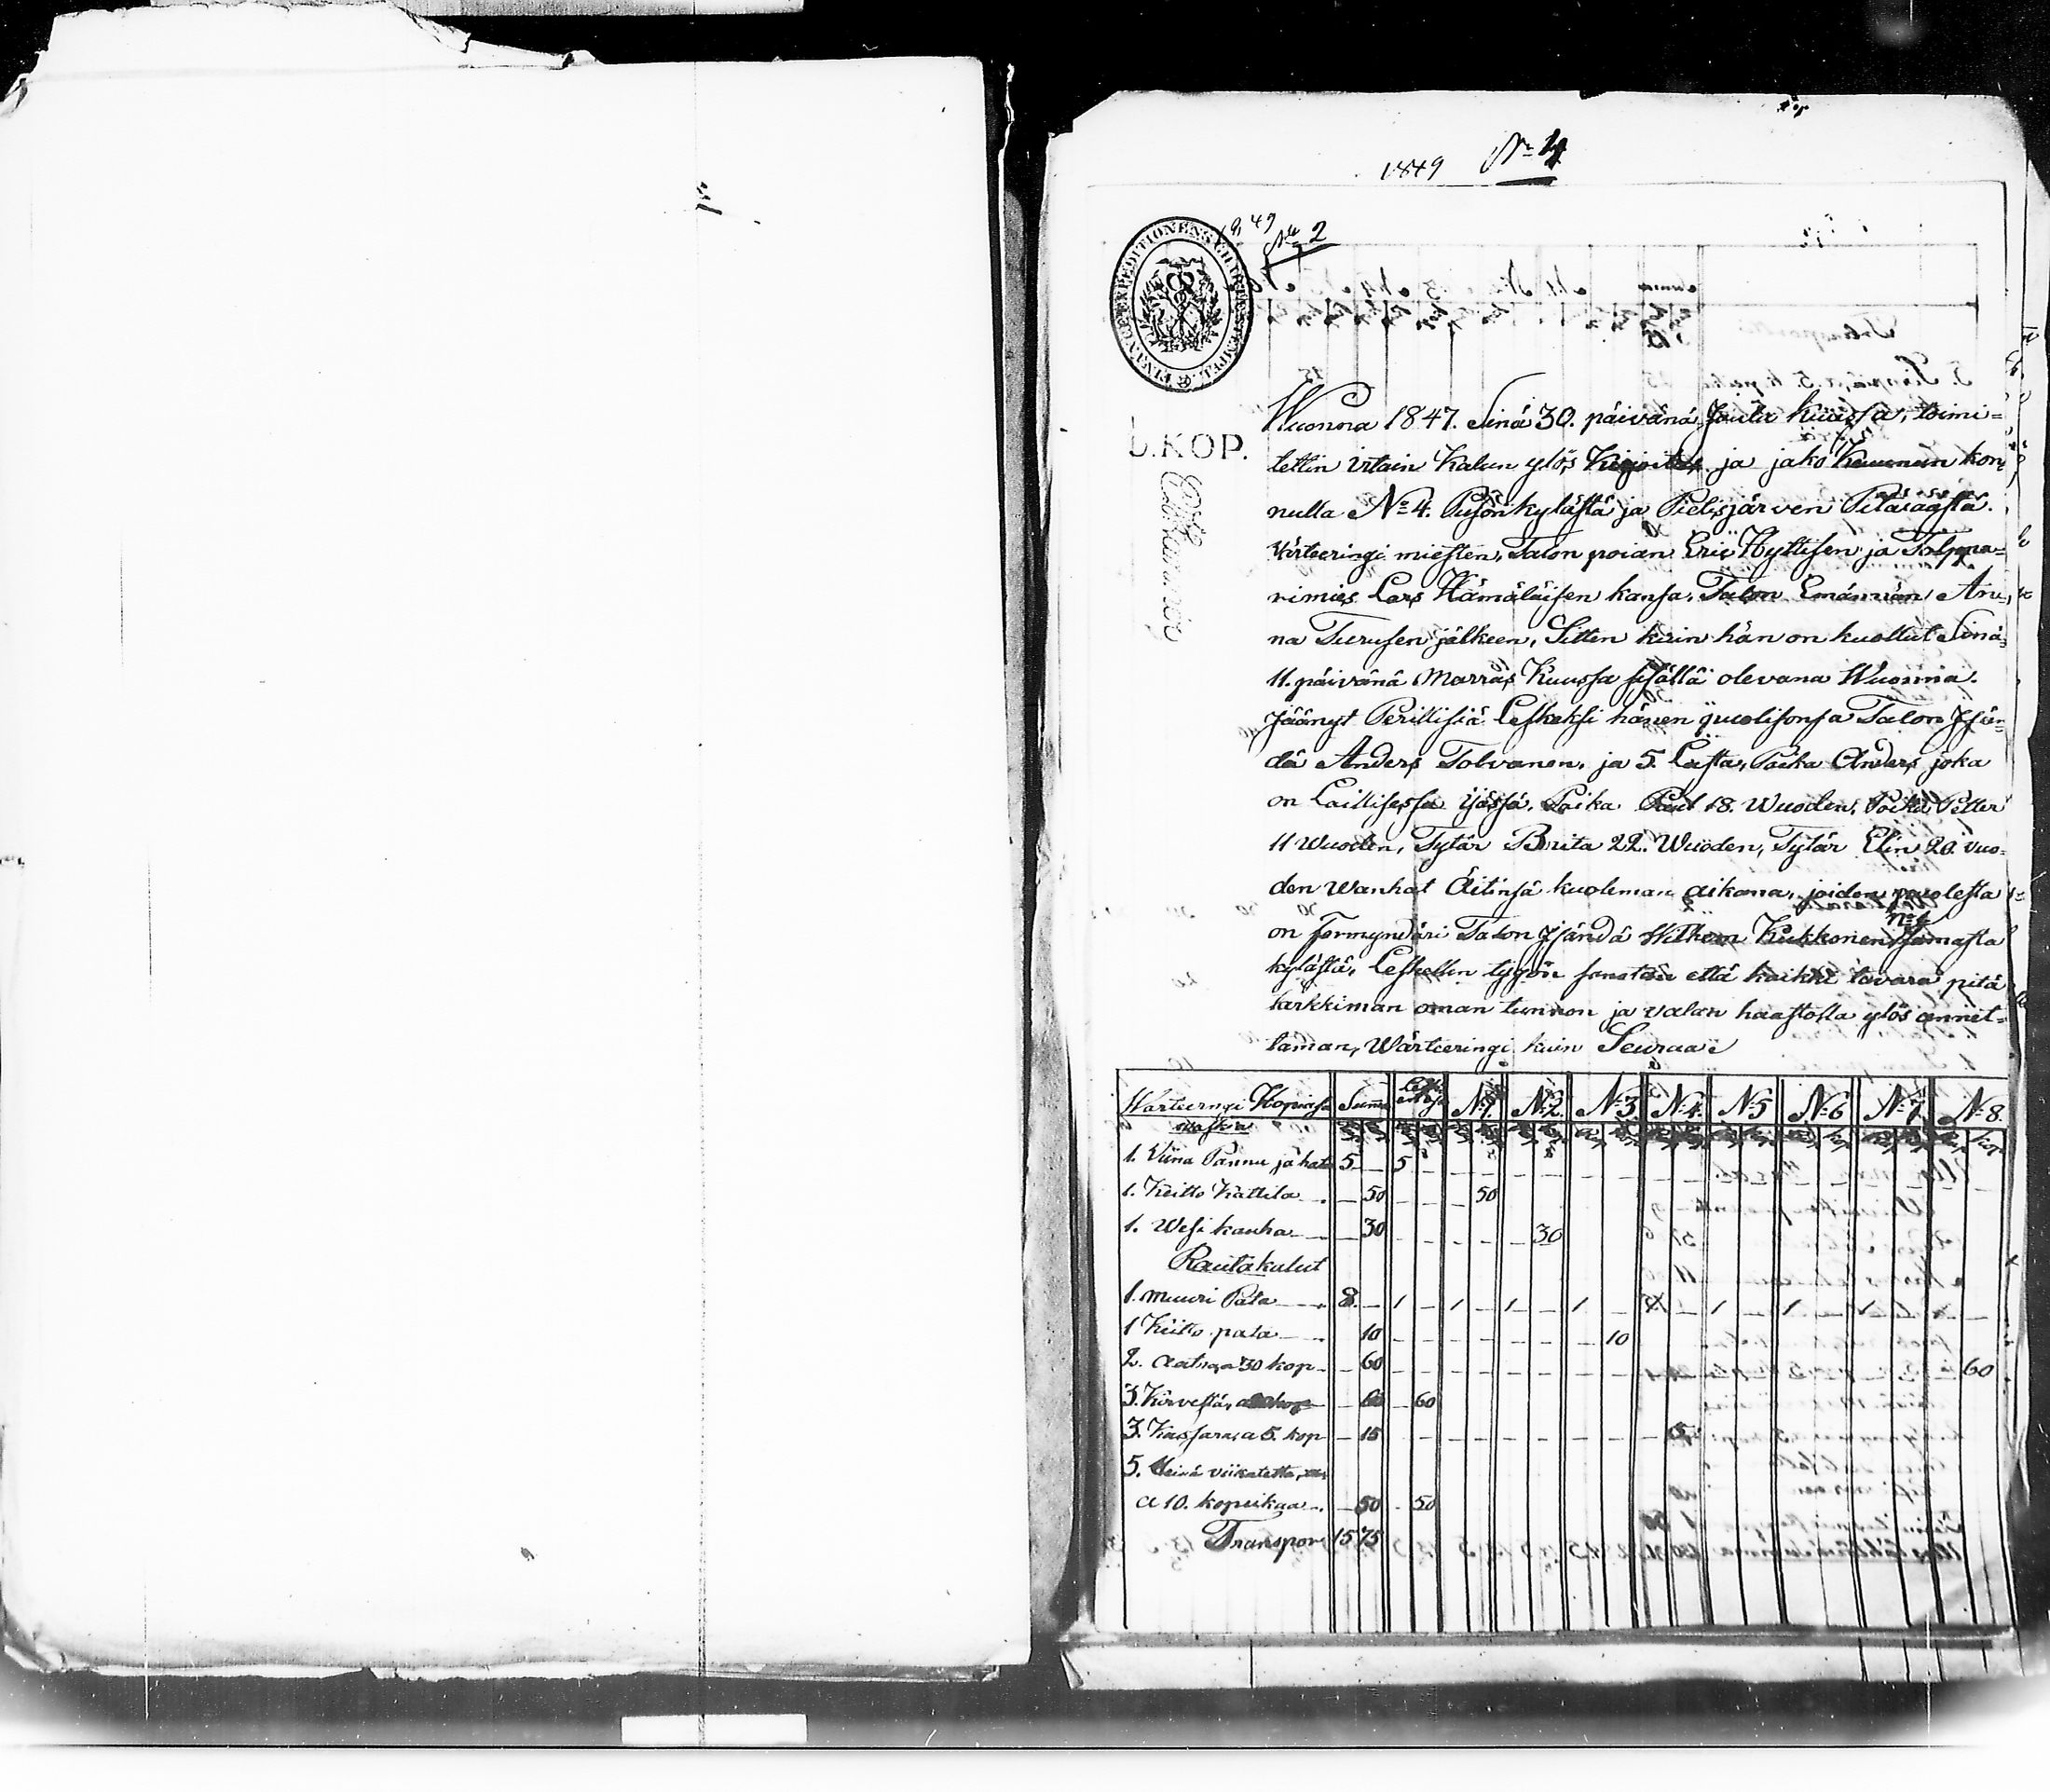 1849 No 4
1849
No 2
FINANCE EXPEDITIONENS CHARTÆ STEMPEL
KOP.
Wuonna 1847. Sinä 30. päivänä Joulu Kuussa, toimi=
tettin irtain Kalun ylös Kirjoitus ja jako Keuunun kon
nulla No 4. Pusön kylästä ja Pielisjärven Pitäjäästä.
Värteeringi miesten, Talon poian Eric Hyttisen ja Tolppa=
rimies Lars Hämäläisen kansa, Talon Emännän, An=
na Turusen jälkeen, Sitten kuin hän on kuollut Sinä
11. päivänä Marras Kuussa sisällä olevana Wuonna.
Jäänyt Perillisiä Leskeksi hänen puolisonsa Talon Isän=
dä Anders Tolvanen, ja 5. Lasta, Poika Anders joka
on Laillisessa ijässä. Poika Paul 18. Wuoden, Poika Petter
11 Wuoden, Tytär Brita 22. Wuoden, Tytär Elin 20. vuo=
den Wanhat Äitinsä kuoleman aikana, joiden puolesta
on Formyndäri Talon Isändä Wilhem Kukkonen No 1 samasta
kylästä, Leskellen tygön sanotan että kaikki tavara pitä
tarkkiman oman tunnon ja valan haastolla ylös annet=
taman, Wärteeringi kuin Seuraa:
Warteeringi Kopeissa Summa Lesk No 1. No 2. No 3. No 4. No 5 No 6 No 7 No 8.
Waskia
1. Viina Pannu ja hat 5 — 5
1. Keitto Kattila — 50 50
1. Wesi kauha — 30 30
Rautakulut
1. muuri Pata — 8. — 1 — 1 — 1 — 1 — 1 — 1 — 1
1 Keitto pata — 10 10
2. aatraa 30 kop — 60 60
3. Kirvestä, a kop — 60 60
3. Kassara, a 5. kop — 15
5. Heinä viikatetta,
a 10. kopeikaa — 50 50
Transpor 15 75